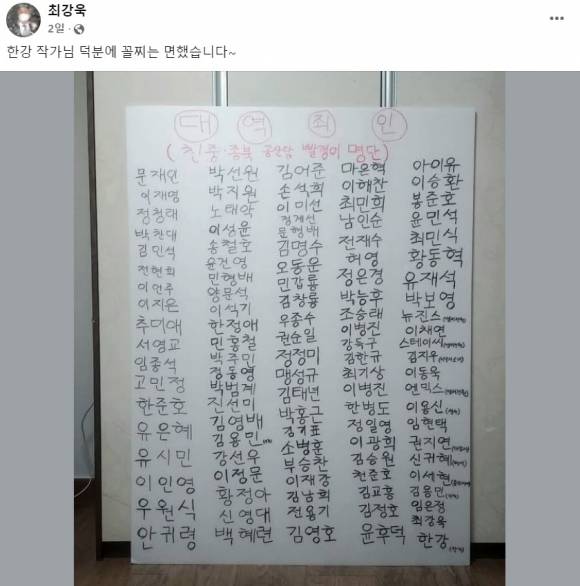 최강욱
2일
한강 작가님 덕분에 꼴찌는 면했습니다~
대 역 죄 인
(친중·종북 공산당 빨갱이 명단)
문재인 박선원 김어준 마은혁 아이유
이재명 박지원 손석희 이해찬 이승환
정청래 노태악 이미선 최민희 봉준호
박찬대 이성윤 정계선 남인순 윤민석
김민석 송철호 문형배 전재수 최민식
전현희 윤건영 김명수 허영 황동혁
이언주 민형배 오동운 정은경 유재석
이지은 양문석 민갑룡 박능후 박보영
추미애 이석기 김창룡 조승태 뉴진스
서영교 한정애 우종수 이병진 이채연
임종석 민홍철 권순일 강득구 스테이씨
고민정 박주민 정정미 김한규 김지우
한준호 정동영 맹성규 최기상 이동욱
유은혜 박범계 김태년 이병진 엔믹스
유시민 진선미 박홍근 한병도 이용신
이인영 김영배 정기표 정일영 임현택
우원식 김용민 소병훈 이광희 권지연
안귀령 강선우 부승찬 김승원 신귀혜
이정문 이재강 천준호 이서현
황정아 김남희 김교흥 김용민
신영대 전용기 김정호 임은정
백혜련 김영호 윤후덕 최강욱
한강